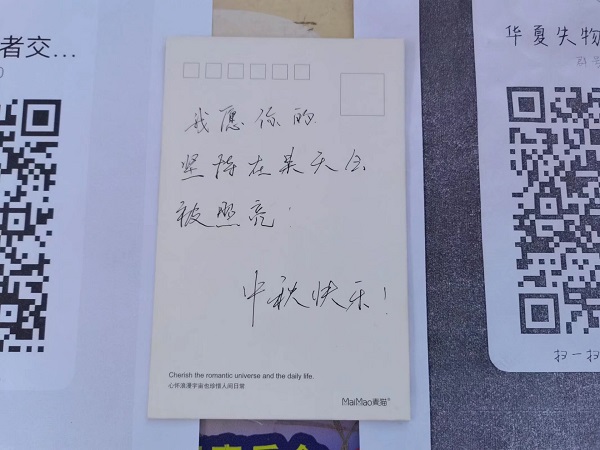 者交...
华夏失物
我愿你的
坚持在某天会
被照亮!
中秋快乐!
Cherish the romantic universe and the daily life.
心怀浪漫宇宙也珍惜人间日常
MaiMao麦猫
扫一扫